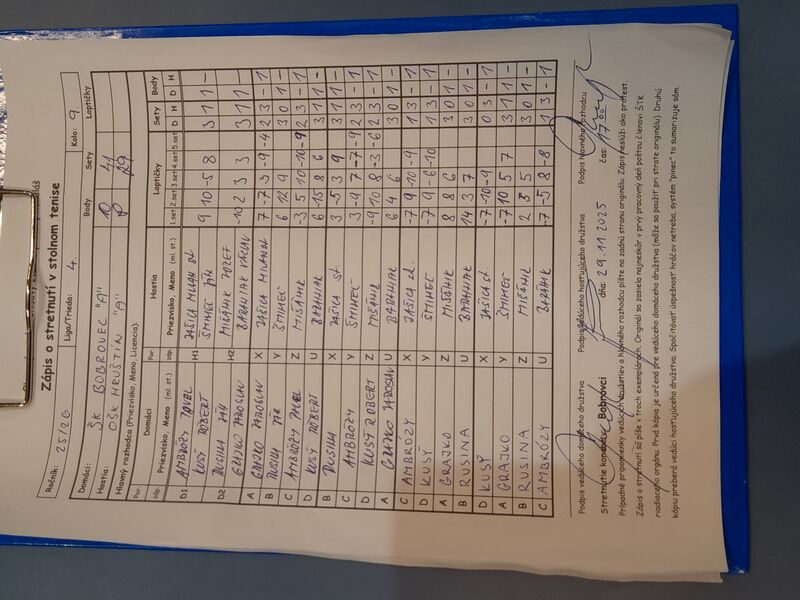 Zápis o stretnutí v stolnom tenise
Ročník: 25/26 Liga/Trieda: 4. Kolo: 9.
Body Sety Loptičky
Domáci: ŠK BOBROVEC "A" 10 41
Hostia: OŠK HRUŠTÍN "A" 8 29
Hlavný rozhodca (Priezvisko, Meno, Licencia):
Por. Domáci Por. Hostia Loptičky Sety Body
záp. Priezvisko, Meno (ml. st.) záp. Priezvisko, Meno (ml. st.) 1.set 2.set 3.set 4.set 5.set D H D H
D1 AMBRÓZY PAVOL H1 JAŠICA MILAN st.
KUSÝ RÓBERT ŠIMHEC 9 10 -5 8 3 1 1 -
D2 RUSINA JÁN H2 MIŠÁNIK JOZEF
GRAJKO JAROSLAV BARANIAK VÁCLAV 10 2 3 3 3 1 1 -
A GRAJKO JAROSLAV X JAŠICA MILAN st. 7 -7 3 -9 -4 2 3 - 1
B RUSINA JÁN Y ŠIMHEC 6 12 9 3 0 1 -
C AMBRÓZY PAVOL Z MIŠÁNIK -3 5 10 -10 -9 2 3 - 1
D KUSÝ RÓBERT U BARANIAK 6 -15 8 6 3 1 1 -
B RUSINA X JAŠICA st. 3 -5 3 9 3 1 1 -
C AMBRÓZY Y ŠIMHEC 3 -9 7 -7 -9 2 3 - 1
D KUSÝ RÓBERT Z MIŠÁNIK -9 10 8 -3 -6 2 3 - 1
A GRAJKO JAROSLAV U BARANIAK 6 4 6 3 0 1 -
C AMBRÓZY X JAŠICA st. -7 9 -10 -9 1 3 - 1
D KUSÝ Y ŠIMHEC -7 9 -6 -10 1 3 - 1
A GRAJKO Z MIŠÁNIK 8 8 6 3 0 1 -
B RUSINA U BARANIAK 14 3 7 3 0 1 -
D KUSÝ X JAŠICA st. -7 -10 -9 0 3 - 1
A GRAJKO Y ŠIMHEC -7 10 5 7 3 1 1 -
B RUSINA Z MIŠÁNIK 2 3 5 3 0 1 -
C AMBRÓZY U BARANIAK -7 -5 8 -8 1 3 - 1
Podpis vedúceho domáceho družstva Podpis vedúceho hosťujúceho družstva Podpis hlavného rozhodcu
Stretnutie konané v: Bobrovci dňa: 29.11.2025 čas: 17.00
Prípadné pripomienky vedúcich družstiev a hlavného rozhodcu píšte na zadnú stranu originálu. Zápis neslúži ako protest.
Zápis o stretnutí sa píše v troch exemplároch. Originál sa zasiela najneskôr v prvý pracovný deň poštou členovi ŠTK
riadiaceho orgánu. Prvá kópia je určená pre vedúceho domáceho družstva (môže sa použiť pri strate originálu). Druhú
kópiu preberá vedúci hosťujúceho družstva. Spočítavať úspešnosť hráčov netreba, systém "pinec" to sumarizuje sám.